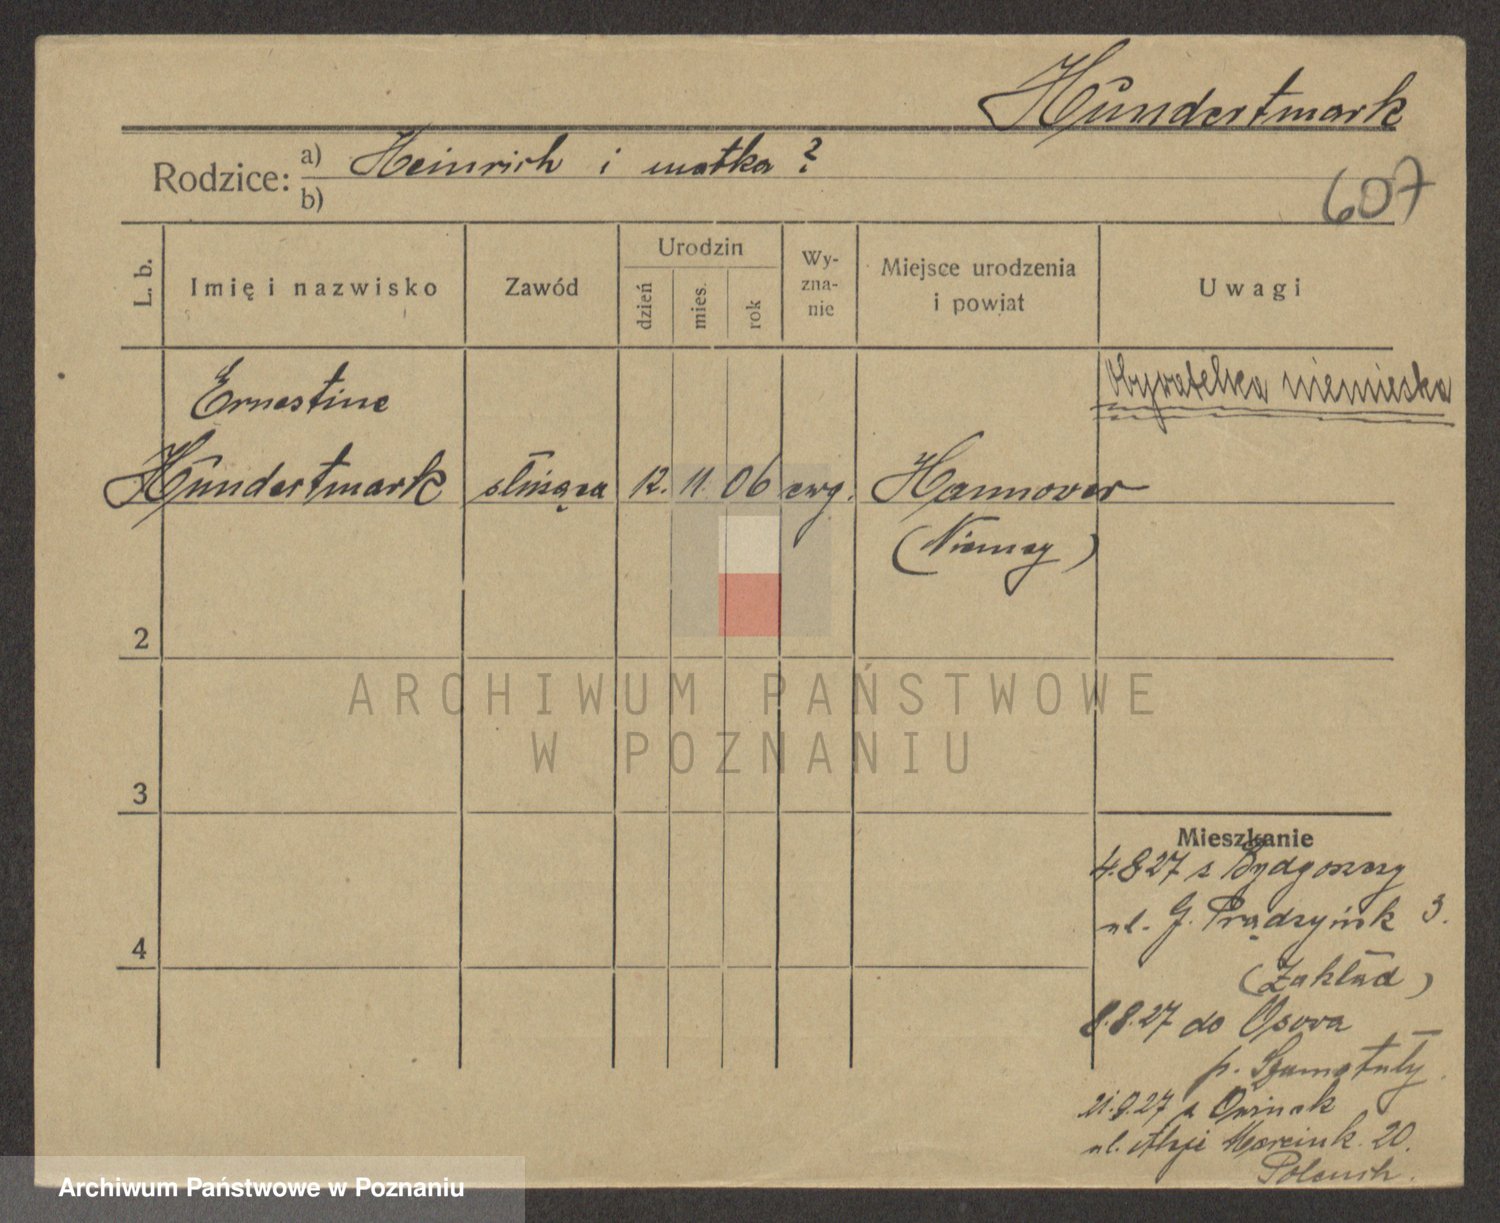 Hundertmark
Rodzice: a) Heinrich i matka ?
b)
607
L. b.
Imię i nazwisko
Zawód
Urodzin
dzień
mies.
rok
Wy-
zna-
nie
Miejsce urodzenia
i powiat
Uwagi
Obywatelka niemieska
Ernestine
Hundertmark służąca 12. 11. 06 ewg. Hannover
(Niemcy)
2
3
4
Mieszkanie
4.8.27 z Bydgoszczy
ul. G. Prądzyńsk 3.
(Zakład)
8.8.27 do
p. Szamotuły
21.9.27 z
ul. Marcink. 20.
ARCHIWUM PAŃSTWOWE
W POZNANIU
Archiwum Państwowe w Poznaniu